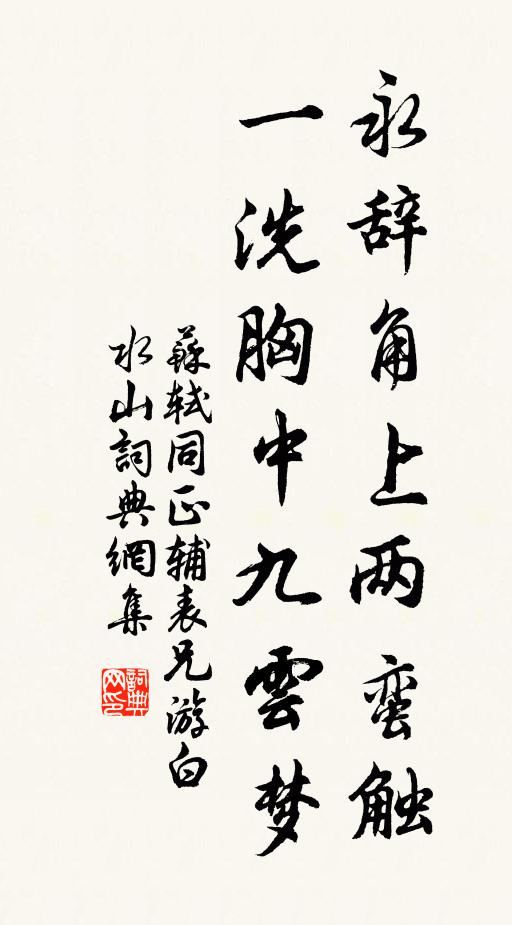 永辞角上两蛮触
一洗胸中九雲梦
蘇轼同正辅表兄游白
水山詞典網集
詞典
网印